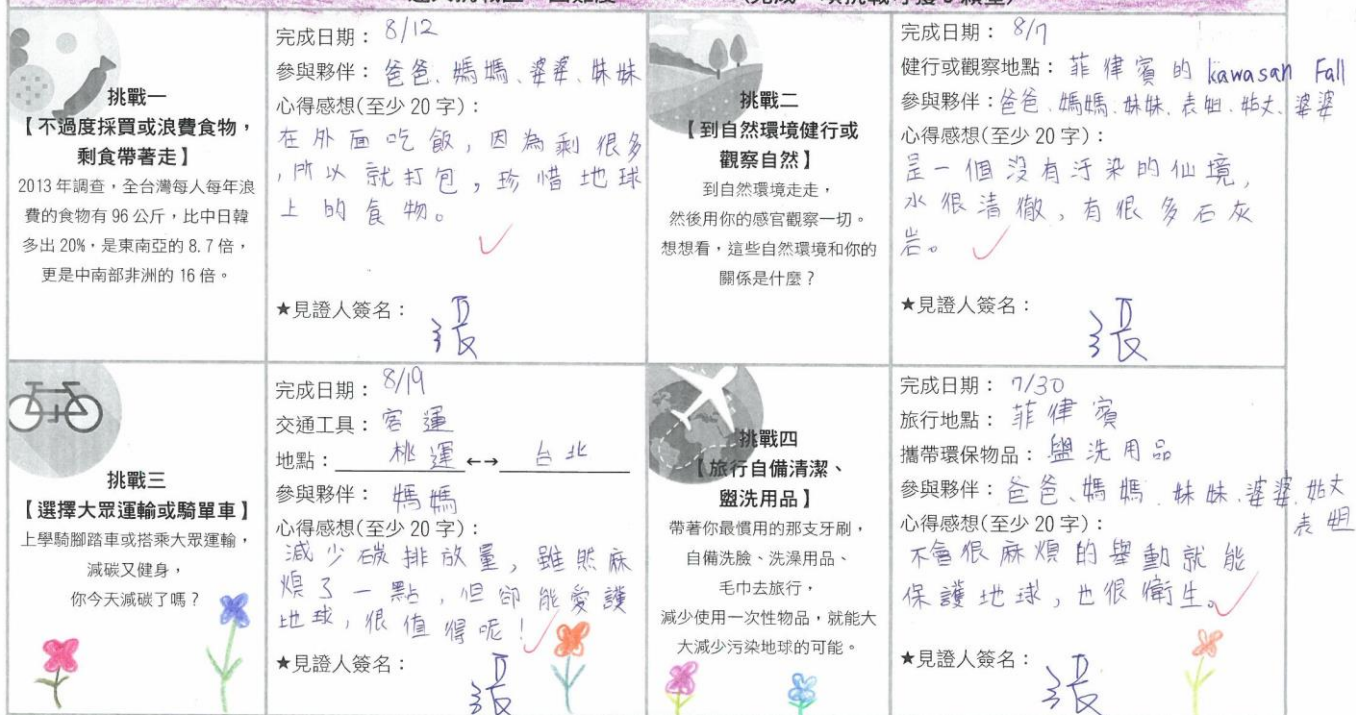 (完成一項挑戰可獲 3 顆星)
挑戰一
【不過度採買或浪費食物，
剩食帶著走】
2013 年調查，全台灣每人每年浪
費的食物有 96 公斤，比中日韓
多出 20%，是東南亞的 8.7 倍，
更是中南部非洲的 16 倍。
完成日期：8/12
參與夥伴：爸爸、媽媽、婆婆、妹妹
心得感想(至少 20 字)：
在外面吃飯，因為剩很多
，所以就打包，珍惜地球
上的食物。
★見證人簽名：張
挑戰二
【到自然環境健行或
觀察自然】
到自然環境走走，
然後用你的感官觀察一切。
想想看，這些自然環境和你的
關係是什麼？
完成日期：8/7
健行或觀察地點：菲律賓的 kawasan Fall
參與夥伴：爸爸、媽媽、妹妹、表姐、姑丈、婆婆
心得感想(至少 20 字)：
是一個沒有汙染的仙境，
水很清徹，有很多石灰
岩。
★見證人簽名：張
挑戰三
【選擇大眾運輸或騎單車】
上學騎腳踏車或搭乘大眾運輸，
減碳又健身，
你今天減碳了嗎？
完成日期：8/19
交通工具：客運
地點：桃運 ←→ 台北
參與夥伴：媽媽
心得感想(至少 20 字)：
減少碳排放量，雖然麻
煩了一點，但卻能愛護
地球，很值得呢！
★見證人簽名：張
挑戰四
【旅行自備清潔、
盥洗用品】
帶著你最慣用的那支牙刷，
自備洗臉、洗澡用品、
毛巾去旅行，
減少使用一次性物品，就能大
大減少污染地球的可能。
完成日期：7/30
旅行地點：菲律賓
攜帶環保物品：盥洗用品
參與夥伴：爸爸、媽媽、妹妹、婆婆、姑丈
表姐
心得感想(至少 20 字)：
不會很麻煩的舉動就能
保護地球，也很衛生。
★見證人簽名：張